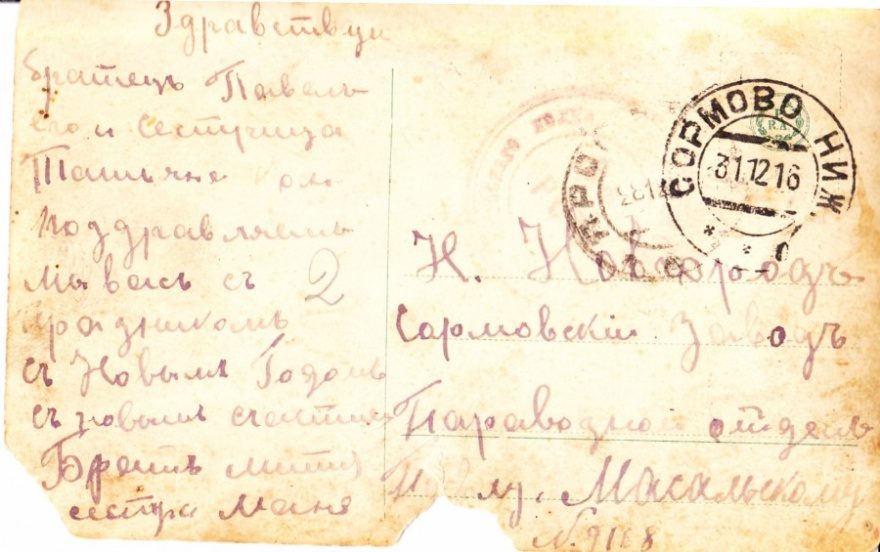 Здравствуй
братецъ Павелъ
и сестрица
Татьяна
поздравляемъ
мы васъ съ
праздникомъ
съ Новымъ Годомъ
съ новымъ счастием
Братъ митя
сестра Маня
2
СОРМОВО НИЖ.
31.12.16
R.A.
Н. Новгородъ
Сормовскiй Заводъ
Параводной отделъ
Масальскому
N. 9168